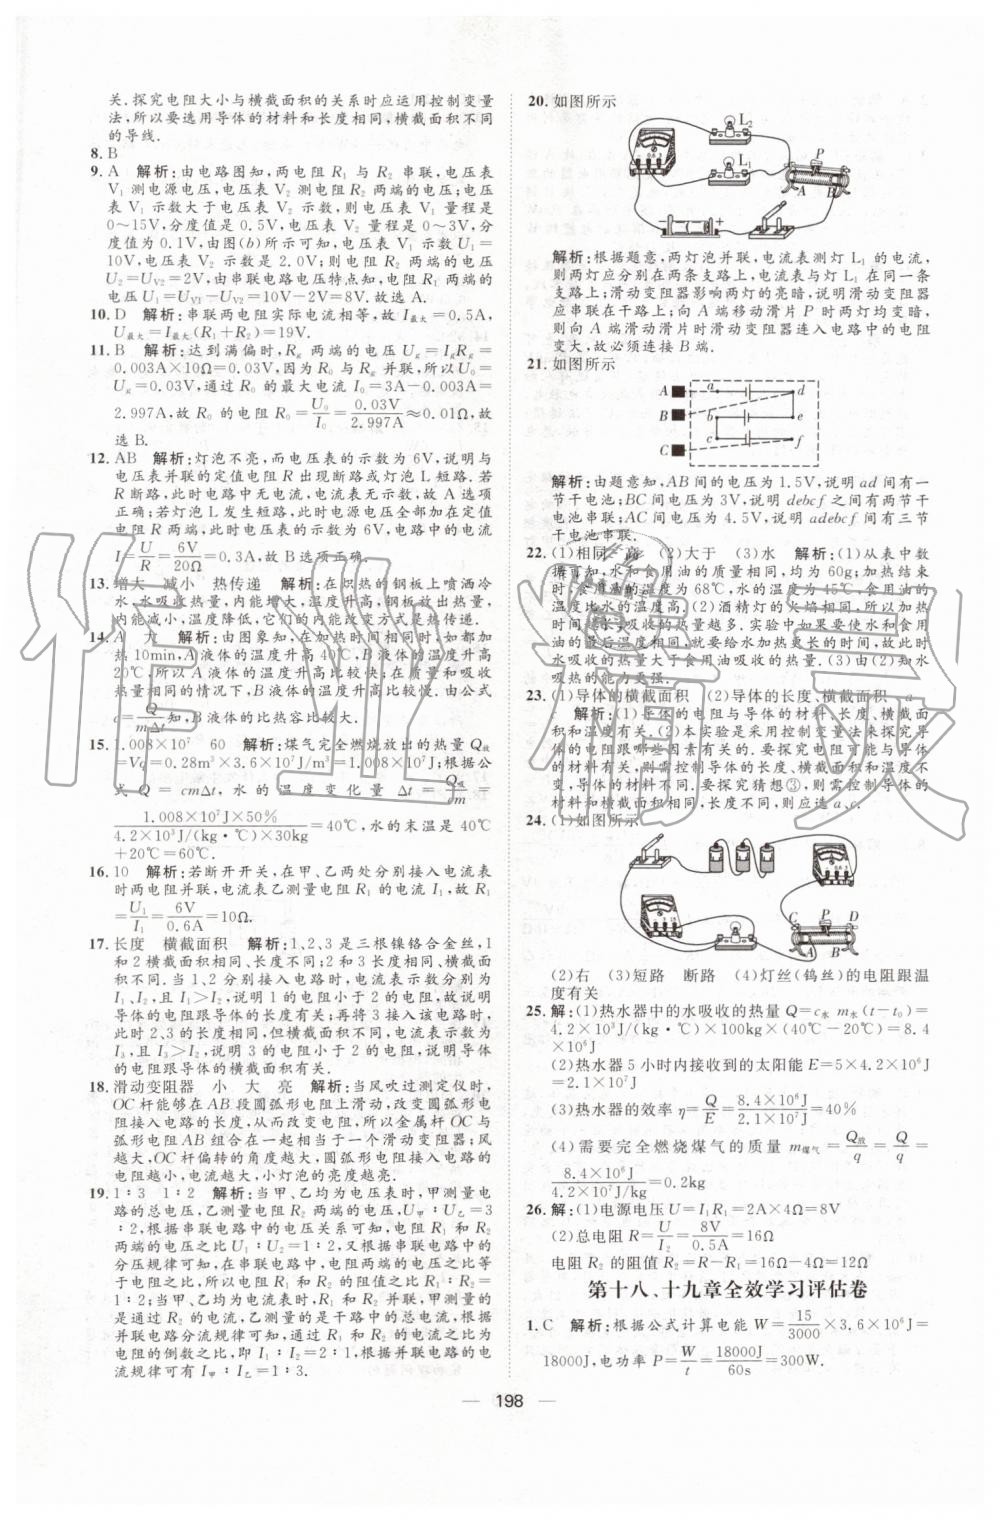 关.探究电阻大小与横截面积的关系时应运用控制变量
法,所以要选用导体的材料和长度相同,横截面积不同
的导线.
8. B
9. A 解析:由电路图知,两电阻 R₁ 与 R₂ 串联,电压表
V₁ 测电源电压,电压表 V₂ 测电阻 R₂ 两端的电压;电压
表 V₁ 示数大于电压表 V₂ 示数,则电压表 V₁ 量程是
0～15V,分度值是 0.5V,电压表 V₂ 量程是 0～3V,分
度值为 0.1V,由图(b)所示可知,电压表 V₁ 示数 U₁=
10V,电压表 V₂ 示数是 2.0V;则电阻 R₂ 两端的电压
U₂=U_V2=2V,由串联电路电压特点知,电阻 R₁ 两端的
电压 U₁=U_V1-U_V2=10V-2V=8V.故选 A.
10. D 解析:串联两电阻实际电流相等,故 I最大=0.5A,
U最大=I最大(R₁+R₂)=19V.
11. B 解析:达到满偏时,Rg 两端的电压 Ug=IgRg=
0.003A×10Ω=0.03V,因为 R₀ 与 Rg 并联,所以 U₀=
Ug=0.03V,通过 R₀ 的最大电流 I₀=3A-0.003A=
2.997A,故 R₀ 的电阻 R₀=U₀/I₀=0.03V/2.997A≈0.01Ω,故
选 B.
12. AB 解析:灯泡不亮,而电压表的示数为 6V,说明与
电压表并联的定值电阻 R 出现断路或灯泡 L 短路.若
R 断路,此时电路中无电流,电流表无示数,故 A 选项
正确;若灯泡 L 发生短路,此时电源电压全部加在定值
电阻 R 两端,此时电压表的示数为 6V,电路中的电流
I=U/R=6V/20Ω=0.3A,故 B 选项正确.
13. 增大 减小 热传递 解析:在炽热的钢板上喷洒冷
水,水吸收热量,内能增大,温度升高,钢板放出热量,
内能减小,温度降低,它们的内能改变方式是热传递.
14. A 大 解析:由图象知,在加热时间相同时,如都加
热 10min,A 液体的温度升高 40℃,B 液体的温度升高
20℃,所以 A 液体温度升高比较快;在质量相同、吸收
热量相同的情况下,B 液体的温度升高比较慢.由公式
c=Q/mΔt 知,B 液体的比热容比较大.
15. 1.008×10⁷ 60 解析:煤气完全燃烧放出的热量 Q放
=Vq=0.28m³×3.6×10⁷J/m³=1.008×10⁷J;根据公
式 Q=cmΔt,水的温度变化量 Δt=Q吸/cm=
1.008×10⁷J×50%/4.2×10³J/(kg·℃)×30kg=40℃,水的末温是 40℃
+20℃=60℃.
16. 10 解析:若断开开关,在甲、乙两处分别接入电流表
时两电阻并联,电流表乙测量电阻 R₁ 的电流 I₁,故 R₁
=U₁/I₁=6V/0.6A=10Ω.
17. 长度 横截面积 解析:1、2、3 是三根镍铬合金丝,1
和 2 横截面积相同、长度不同;2 和 3 长度相同、横截
面积不同.当 1、2 分别接入电路时,电流表示数分别为
I₁、I₂,且 I₁>I₂,说明 1 的电阻小于 2 的电阻,故说明
导体的电阻跟导体的长度有关;再将 3 接入该电路时,
此时 2、3 的长度相同,但横截面积不同,电流表示数为
I₃,且 I₃>I₂,说明 3 的电阻小于 2 的电阻,说明导体
的电阻跟导体的横截面积有关.
18. 滑动变阻器 小 大 亮 解析:当风吹过测定仪时,
OC 杆能够在 AB 段圆弧形电阻上滑动,改变圆弧形电
阻接入电路的长度,从而改变电阻,所以金属杆 OC 与
弧形电阻 AB 组合在一起相当于一个滑动变阻器;风
越大,OC 杆偏转的角度越大,圆弧形电阻接入电路的
电阻越小,电流越大,小灯泡的亮度越亮.
19. 1∶3 1∶2 解析:当甲、乙均为电压表时,甲测量电
路的总电压,乙测量电阻 R₂ 两端的电压,U甲∶U乙=3
∶2,根据串联电路中的电压关系可知,电阻 R₁ 和 R₂
两端的电压之比 U₁∶U₂=1∶2.根据串联电路中的
分压规律可知,在串联电路中,两端的电压之比等于
电阻之比,所以电阻 R₁ 和 R₂ 的阻值之比 R₁∶R₂=
1∶2;当甲、乙均为电流表时,两电阻并联,甲测量的
是通过 R₂ 的电流,乙测量的是干路中的总电流,根据
并联电路分流规律可知,并联电路中的电流之比等于
电阻的倒数之比,即 I₁∶I₂=2∶1.根据并联电路的电
流规律可有 I甲∶I乙=1∶3.
20. 如图所示
L₂
L₁
P
A B
解析:根据题意,两灯泡并联,电流表测灯 L₁ 的电流,
则两灯应分别在两条支路上,电流表与灯 L₁ 在同一条
支路上;滑动变阻器影响两灯的亮暗,说明滑动变阻器
应串联在干路上;向 A 端移动滑片 P 时两灯均变暗,
则向 A 端滑动滑片时滑动变阻器连入电路中的电阻
变大,故必须连接 B 端.
21. 如图所示
A a d
B b e
C c f
解析:由题意知,AB 间的电压为 1.5V,说明 ad 间有一
节干电池;BC 间电压为 3V,说明 debcf 之间有两节干
电池串联;AC 间电压为 4.5V,说明 adebcf 间有三节
干电池串联.
22. (1)相同 高 (2)大于 (3)水 解析:(1)从表中数
据可知,水和食用油的质量相同,均为 60g;加热结束
时,食用油的温度为 68℃,水的温度为 45℃,食用油的
温度比水的温度高.(2)酒精灯的火焰相同,所以加热
时间越长吸收的热量越多.实验中如果要使水和食用
油的最后温度相同,就要给水加热更长的时间,故此时
水吸收的热量大于食用油吸收的热量.(3)由(2)知水
吸热的能力更强.
23. (1)导体的横截面积 (2)导体的长度、横截面积 a、
c 解析:(1)导体的电阻与导体的材料、长度、横截面
积和温度有关.(2)本实验是采用控制变量法来探究导
体的电阻跟哪些因素有关的.要探究电阻可能与导体
的材料有关,则需控制导体的长度、横截面积和温度不
变,导体的材料不同.要探究猜想③,则需控制导体的
材料和横截面积相同,长度不同,则应选 a、c.
24. (1)如图所示
C P D
A B
(2)右 (3)短路 断路 (4)灯丝(钨丝)的电阻跟温
度有关
25. 解:(1)热水器中的水吸收的热量 Q=c水 m水(t-t₀)=
4.2×10³J/(kg·℃)×100kg×(40℃-20℃)=8.4
×10⁶J
(2)热水器 5 小时内接收到的太阳能 E=5×4.2×10⁶J
=2.1×10⁷J
(3)热水器的效率 η=Q/E=8.4×10⁶J/2.1×10⁷J=40%
(4)需要完全燃烧煤气的质量 m煤气=Q放/q=Q/q=
8.4×10⁶J/4.2×10⁷J/kg=0.2kg
26. 解:(1)电源电压 U=I₁R₁=2A×4Ω=8V
(2)总电阻 R=U/I₂=8V/0.5A=16Ω
电阻 R₂ 的阻值 R₂=R-R₁=16Ω-4Ω=12Ω
第十八、十九章全效学习评估卷
1. C 解析:根据公式计算电能 W=15/3000×3.6×10⁶J=
18000J,电功率 P=W/t=18000J/60s=300W.
— 198 —
作业精灵